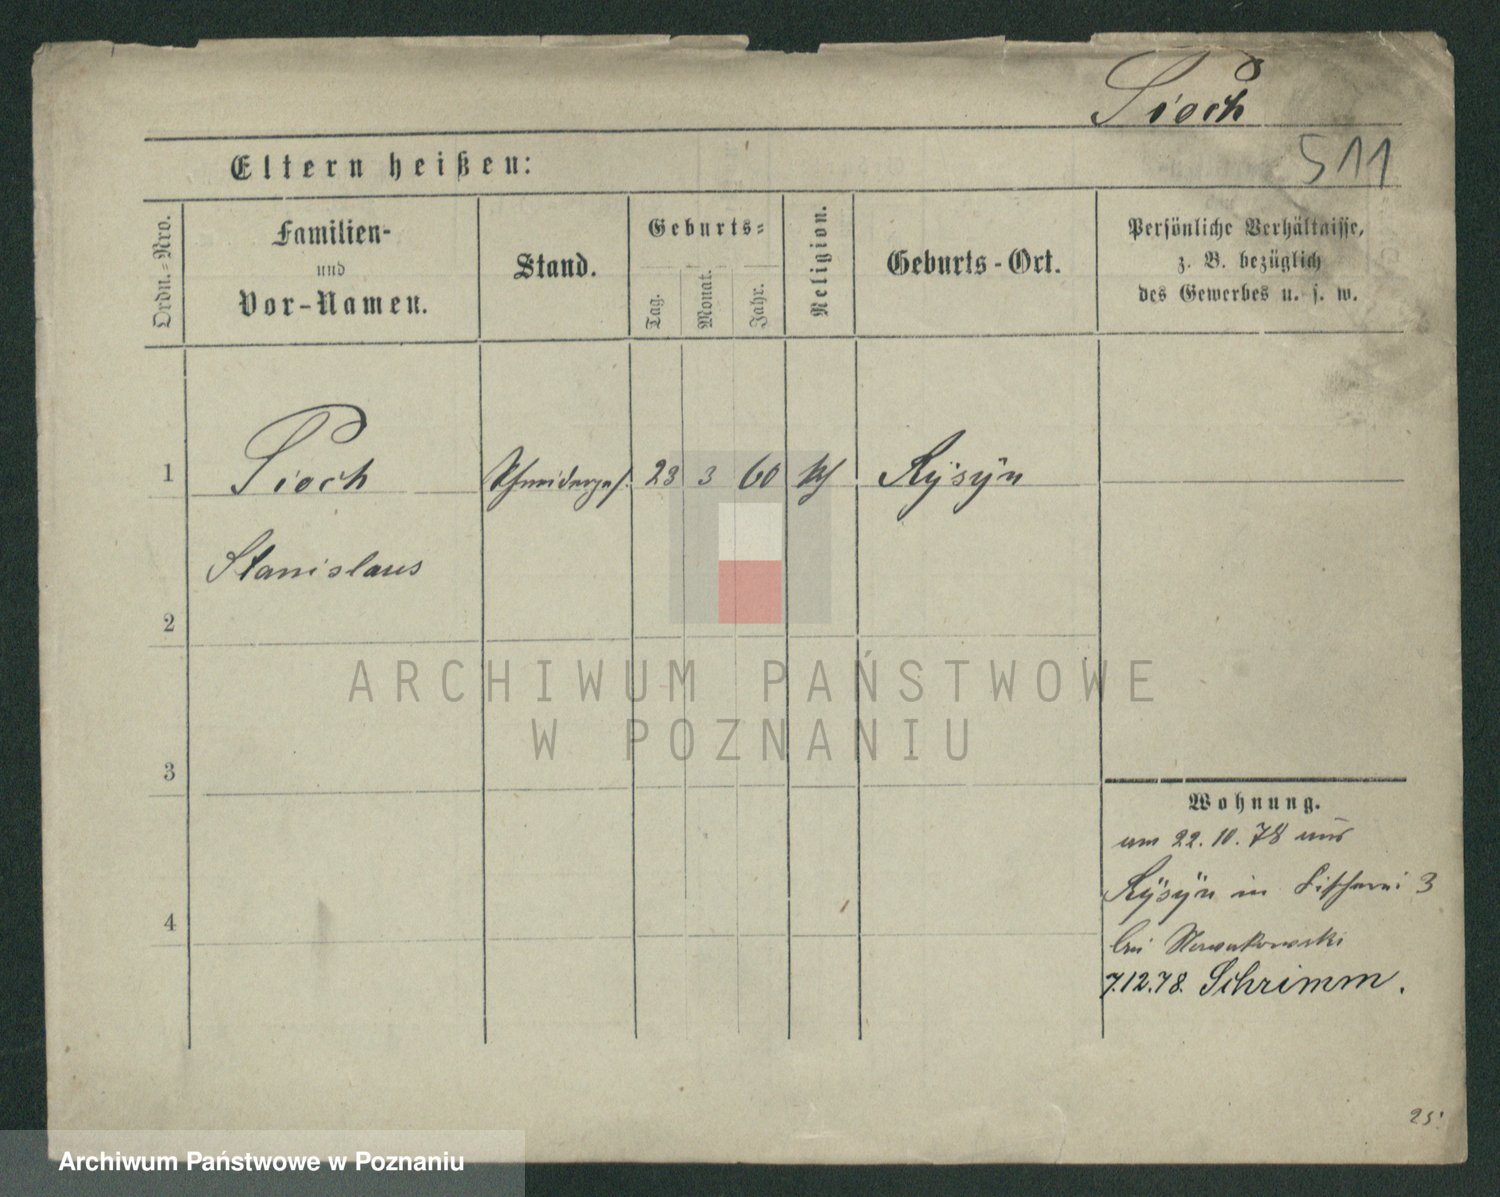 Pioch
511
Eltern heißen:
Ordn.=Nro.
Familien-
und
Vor-Namen.
Stand.
Geburts=
Tag.
Monat.
Jahr.
Religion.
Geburts-Ort.
Persönliche Verhältnisse,
z. B. bezüglich
des Gewerbes u. s. w.
1 Pioch Schneiderges. 23 3 60 kth Ryšyn
Stanislaus
2
3
4
ARCHIWUM PAŃSTWOWE
W POZNANIU
Wohnung.
am 22.10.78 aus
in Fischerei 3
bei Nowakowski
7.12.78. Schrimm.
25
Archiwum Państwowe w Poznaniu